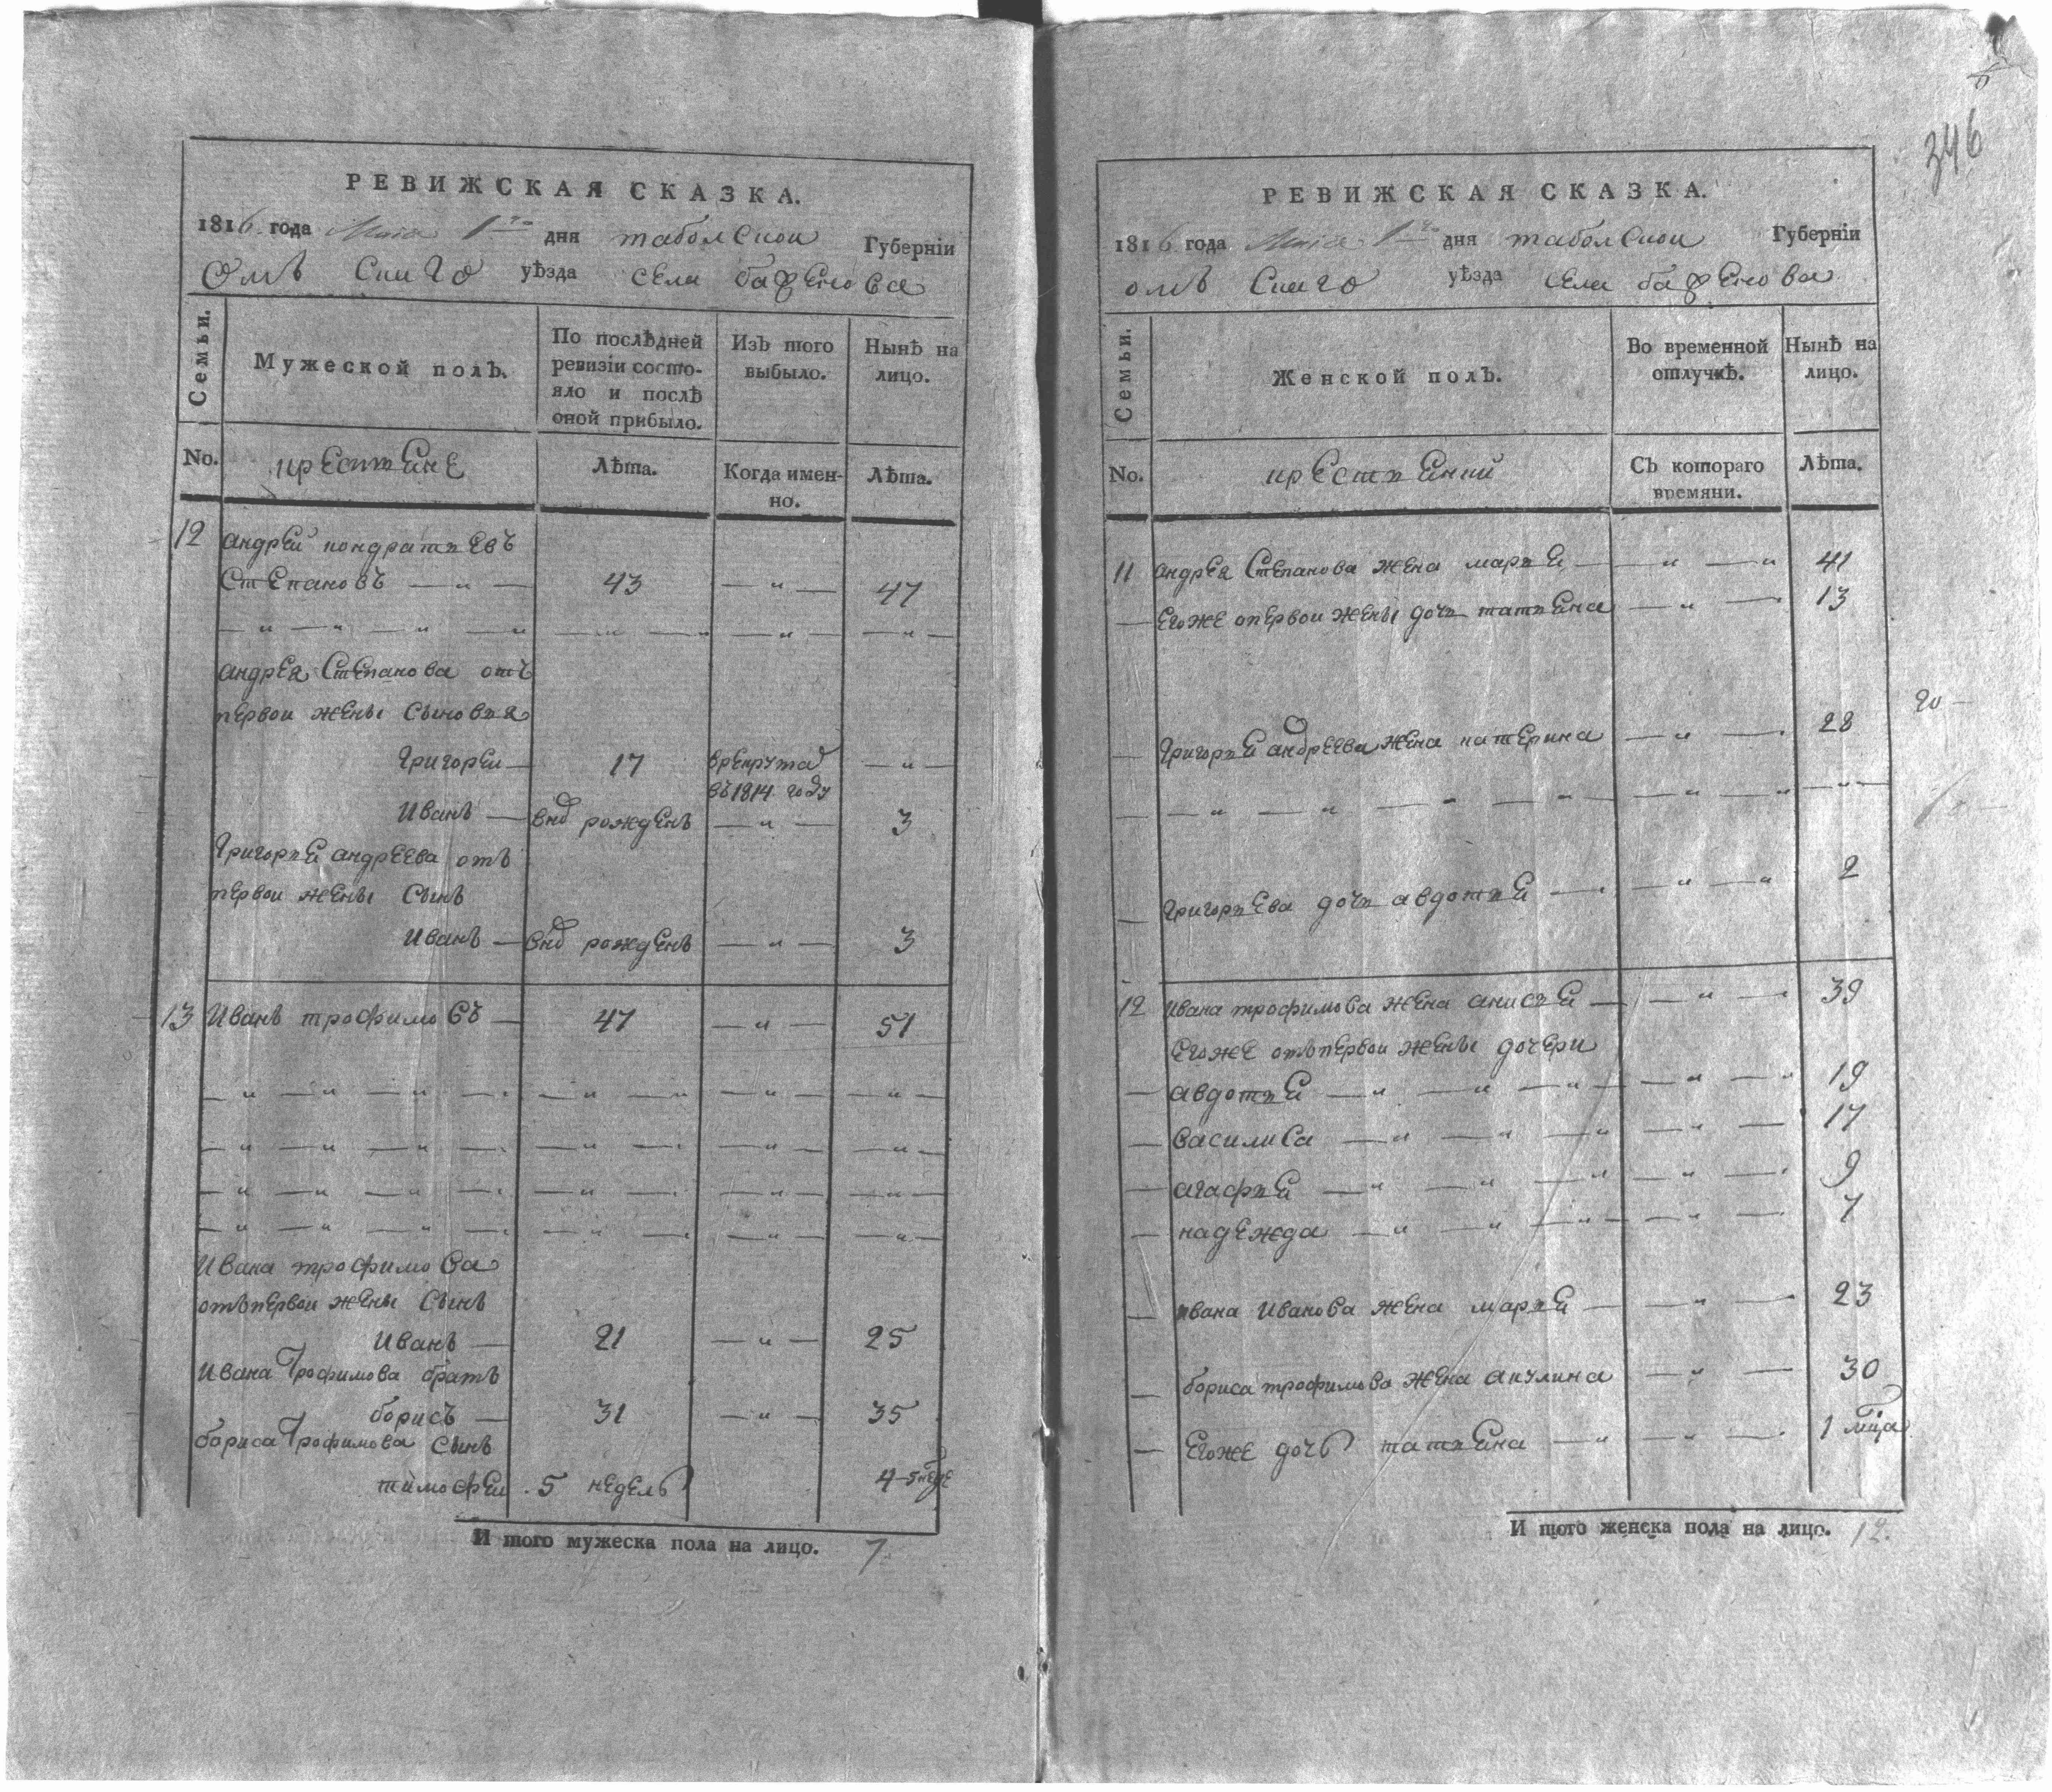 346
РЕВИЖСКАЯ СКАЗКА.
1816 года Маiя 1го дня таболской Губернiи
Омъ скиго уѣзда села бафенова
Семьи.
Мужеской полъ.
По послѣдней ревизiи состояло и послѣ оной прибыло.
Изъ того выбыло.
Нынѣ на лицо.
No.
крестяне
Лѣта.
Когда именно.
Лѣта.
12 андрей кондратьевъ
степановъ — 43 — 47
андрея степанова отъ
первои жены сыновья
григореи — 17 врекрута въ 1814 году —
иванъ — внов рожденъ — 3
григорья андреева отъ
первои жены сынъ
иванъ — внов рожденъ — 3
13 иванъ трофимовъ — 47 — 51
ивана трофимова
отъпервои жены сынъ
иванъ — 21 — 25
ивана трофимова братъ
борисъ — 31 — 35
бориса трофимова сынъ
тимофеи 5 недель 4-5 неде
И того мужеска пола на лицо. 7
РЕВИЖСКАЯ СКАЗКА.
1816 года Маiя 1го дня таболской Губернiи
омъ скиго уѣзда села бафенова
Семьи.
Женской полъ.
Во временной отлучкѣ.
Нынѣ на лицо.
No.
Съ котораго времяни.
Лѣта.
11 андрея степанова жена марья — 41
егоже опервои жены дочь татьяна — 13
20
григорья андреева жена катерина — 28
григорьева дочь авдотья — 2
12 ивана трофимова жена анисья — 39
егоже отъпервои жены дочери
авдотья — 19
василиса — 17
агафья — 9
надежда — 7
ивана иванова жена марья — 23
бориса трофимова жена акулина — 30
егоже дочь татьяна — 1 мца
И того женска пола на лицо. 12.